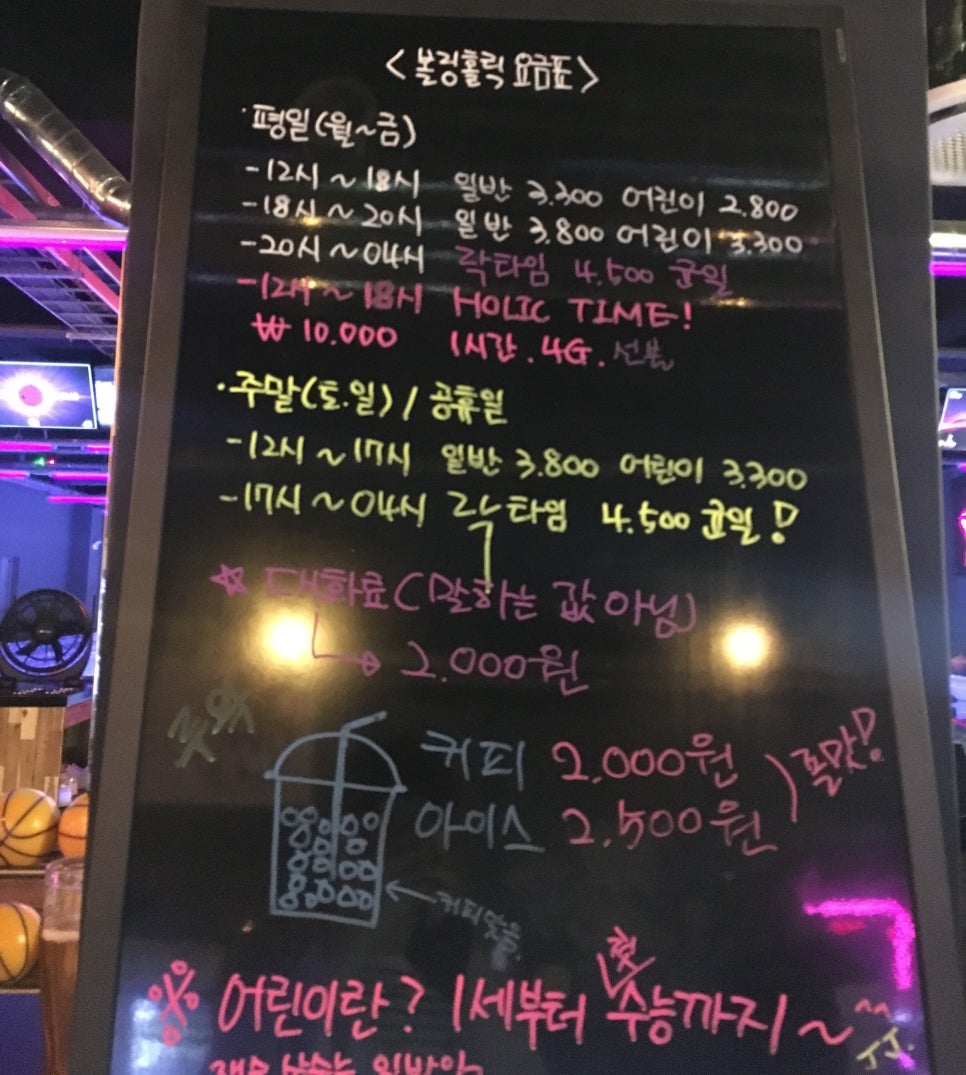 <볼링홀릭 요금표>
· 평일(월~금)
-12시~18시 일반 3.300 어린이 2.800
-18시~20시 일반 3.800 어린이 3.300
-20시~04시 락타임 4.500 균일
-12시~18시 HOLIC TIME!
₩10.000 1시간.4G.선불
· 주말(토.일) / 공휴일
-12시~17시 일반 3.800 어린이 3.300
-17시~04시 락타임 4.500 균일!
☆ 대화료(말하는 값 아님)
2.000원
커피 2.000원
아이스 2.500원
존맛!
←커피맞음
※ 어린이란? 1세부터 첫 수능까지~ ^^